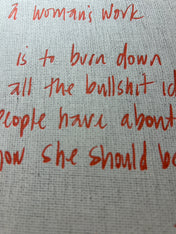 a woman's work
is to burn down
all the bullshit id
people have about
how she should be